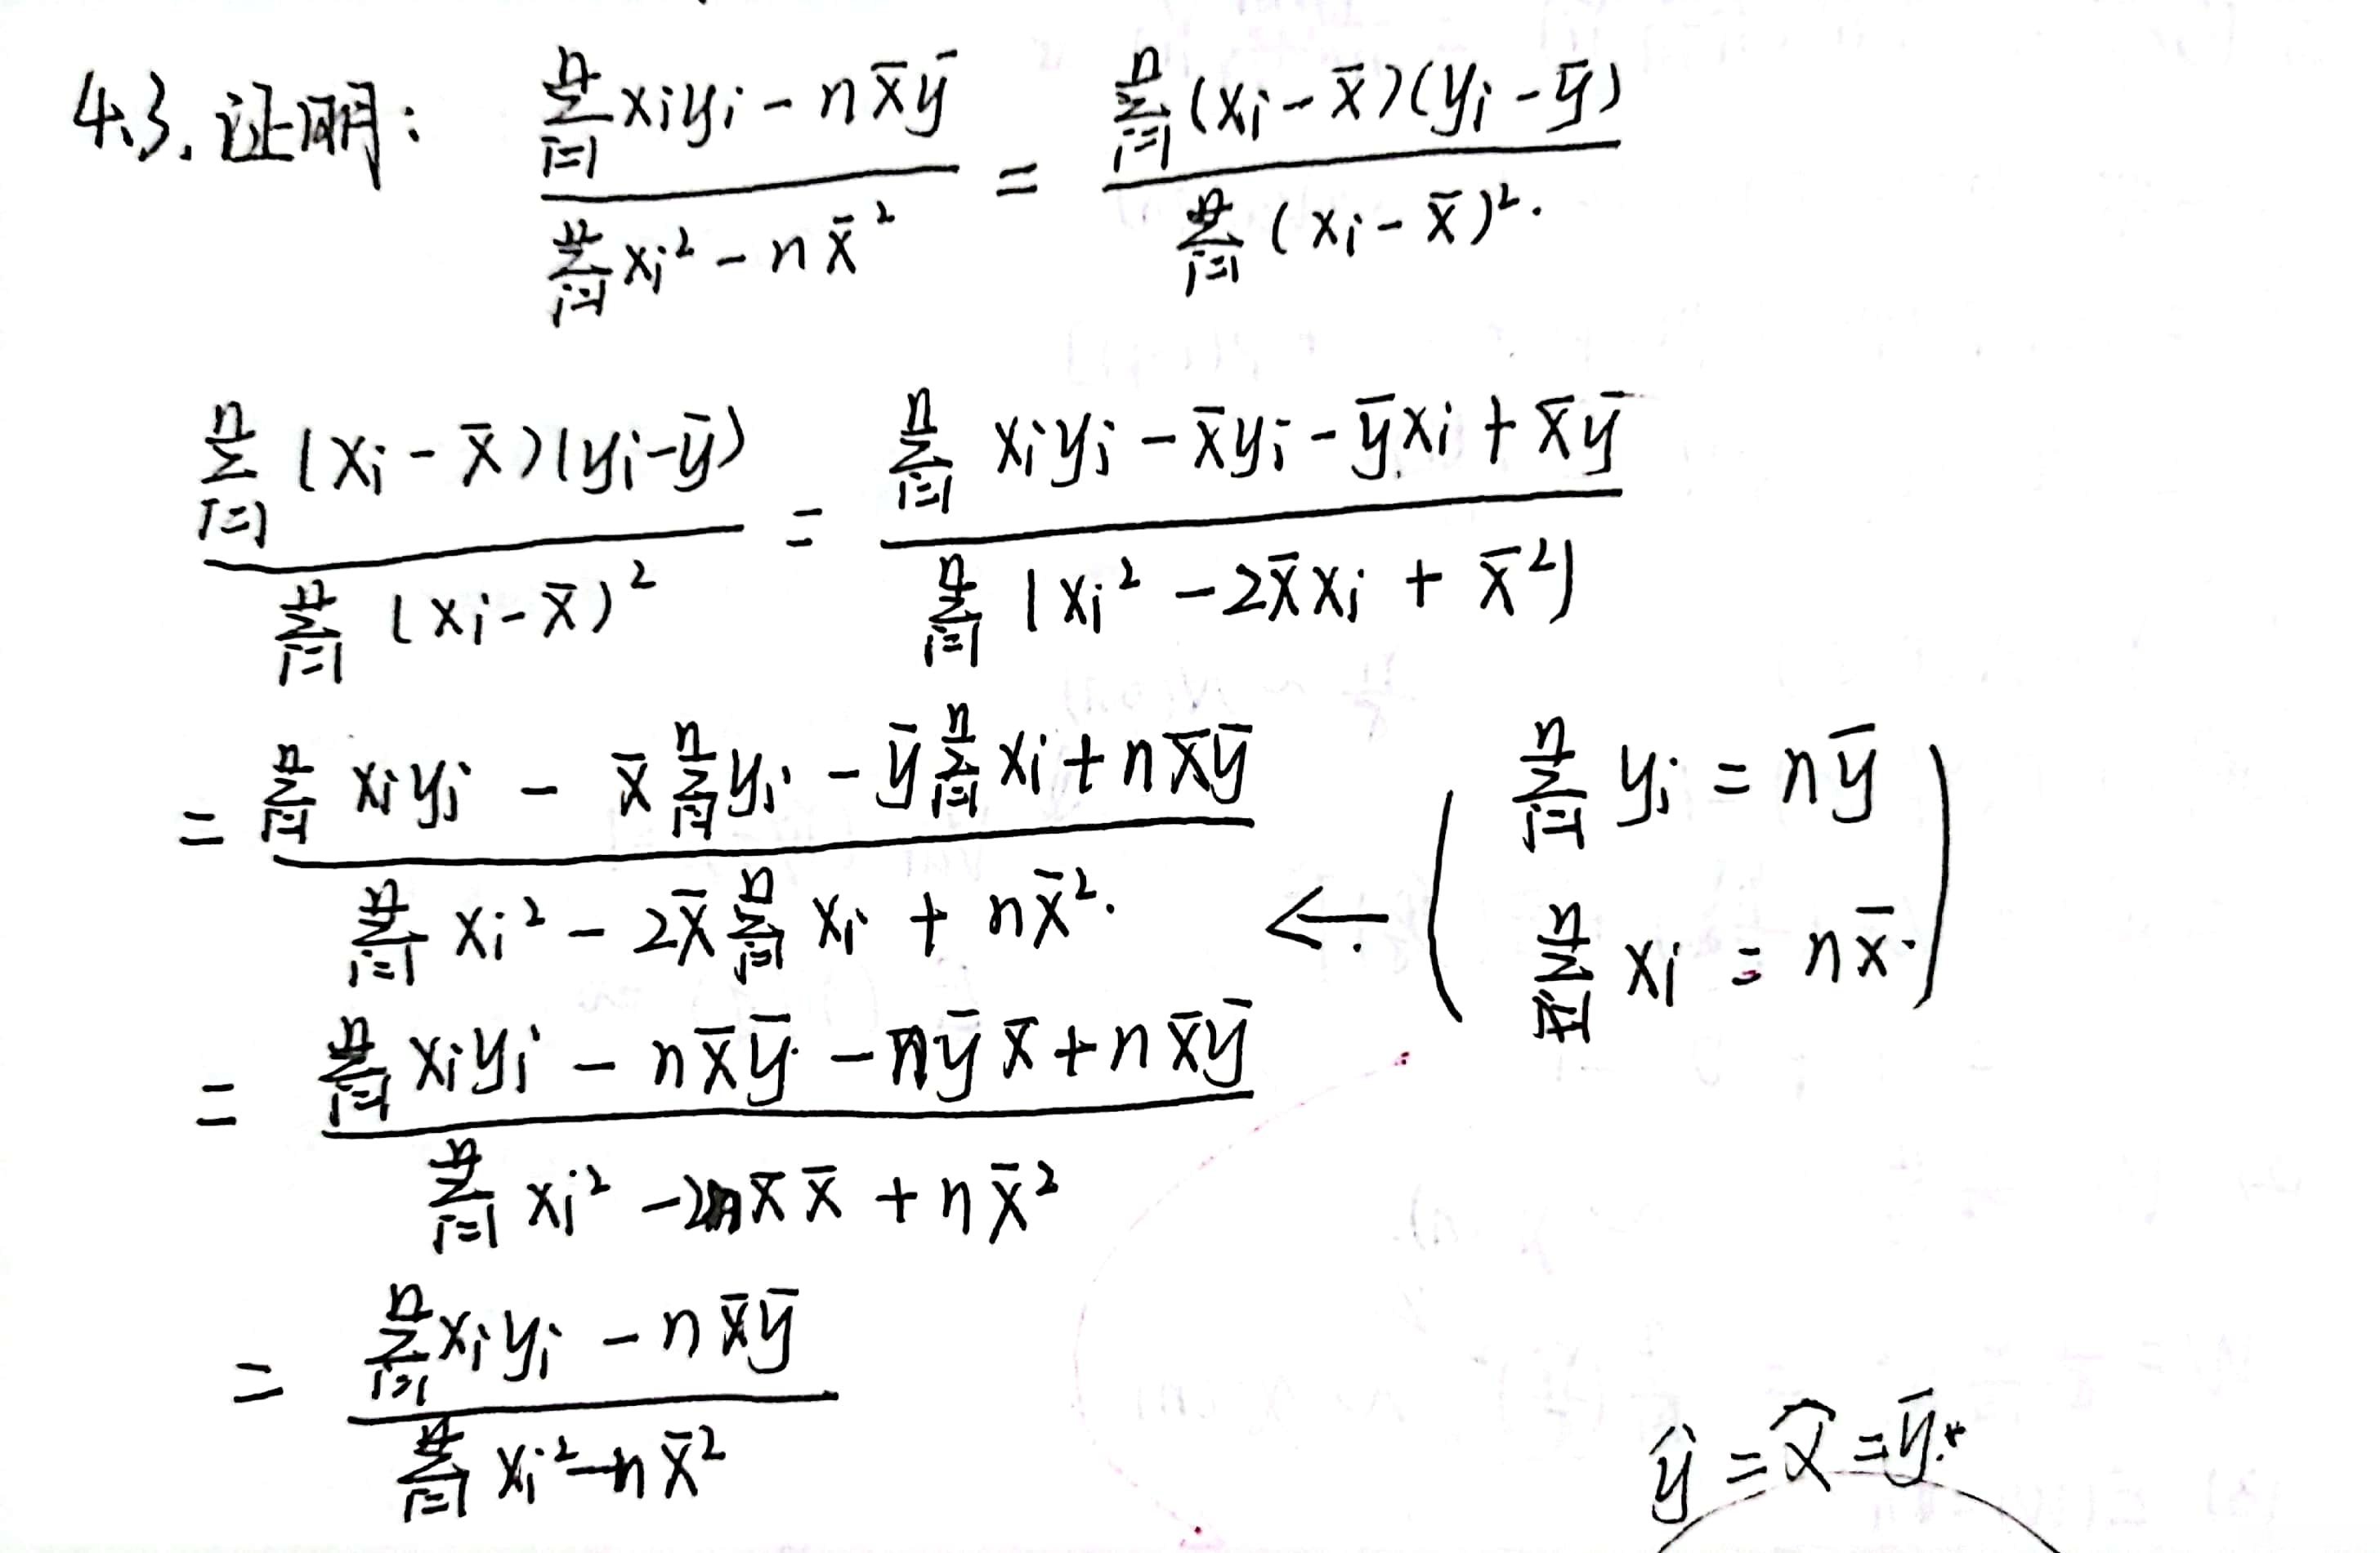 4.3. 证明: \frac{\sum_{i=1}^{n} x_i y_i - n\bar{x}\bar{y}}{\sum_{i=1}^{n} x_i^2 - n\bar{x}^2} = \frac{\sum_{i=1}^{n} (x_i - \bar{x})(y_i - \bar{y})}{\sum_{i=1}^{n} (x_i - \bar{x})^2}.
\frac{\sum_{i=1}^{n} (x_i - \bar{x})(y_i - \bar{y})}{\sum_{i=1}^{n} (x_i - \bar{x})^2} = \frac{\sum_{i=1}^{n} x_i y_i - \bar{x} y_i - \bar{y} x_i + \bar{x}\bar{y}}{\sum_{i=1}^{n} (x_i^2 - 2\bar{x} x_i + \bar{x}^2)}
= \frac{\sum_{i=1}^{n} x_i y_i - \bar{x} \sum_{i=1}^{n} y_i - \bar{y} \sum_{i=1}^{n} x_i + n\bar{x}\bar{y}}{\sum_{i=1}^{n} x_i^2 - 2\bar{x} \sum_{i=1}^{n} x_i + n\bar{x}^2.} ← ( \sum_{i=1}^{n} y_i = n\bar{y} \sum_{i=1}^{n} x_i = n\bar{x}. )
= \frac{\sum_{i=1}^{n} x_i y_i - n\bar{x}\bar{y} - n\bar{y}\bar{x} + n\bar{x}\bar{y}}{\sum_{i=1}^{n} x_i^2 - 2n\bar{x}\bar{x} + n\bar{x}^2}
= \frac{\sum_{i=1}^{n} x_i y_i - n\bar{x}\bar{y}}{\sum_{i=1}^{n} x_i^2 - n\bar{x}^2}
\hat{y} = \hat{α} = \bar{y}.